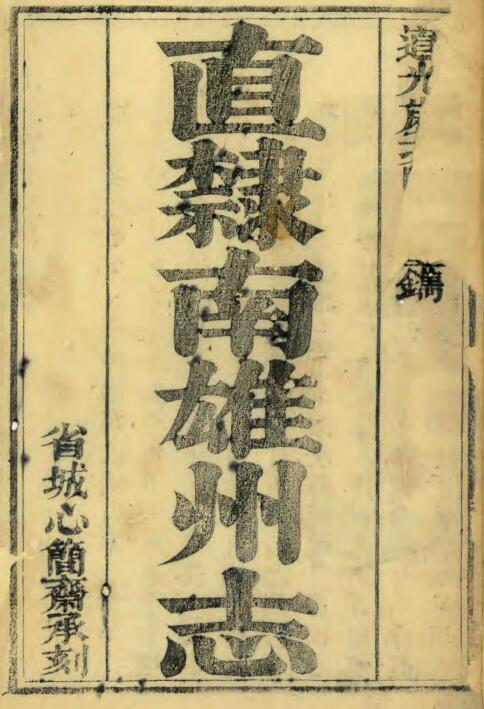 道光
鐫
直隸南雄州志
省城心簡齋承刻